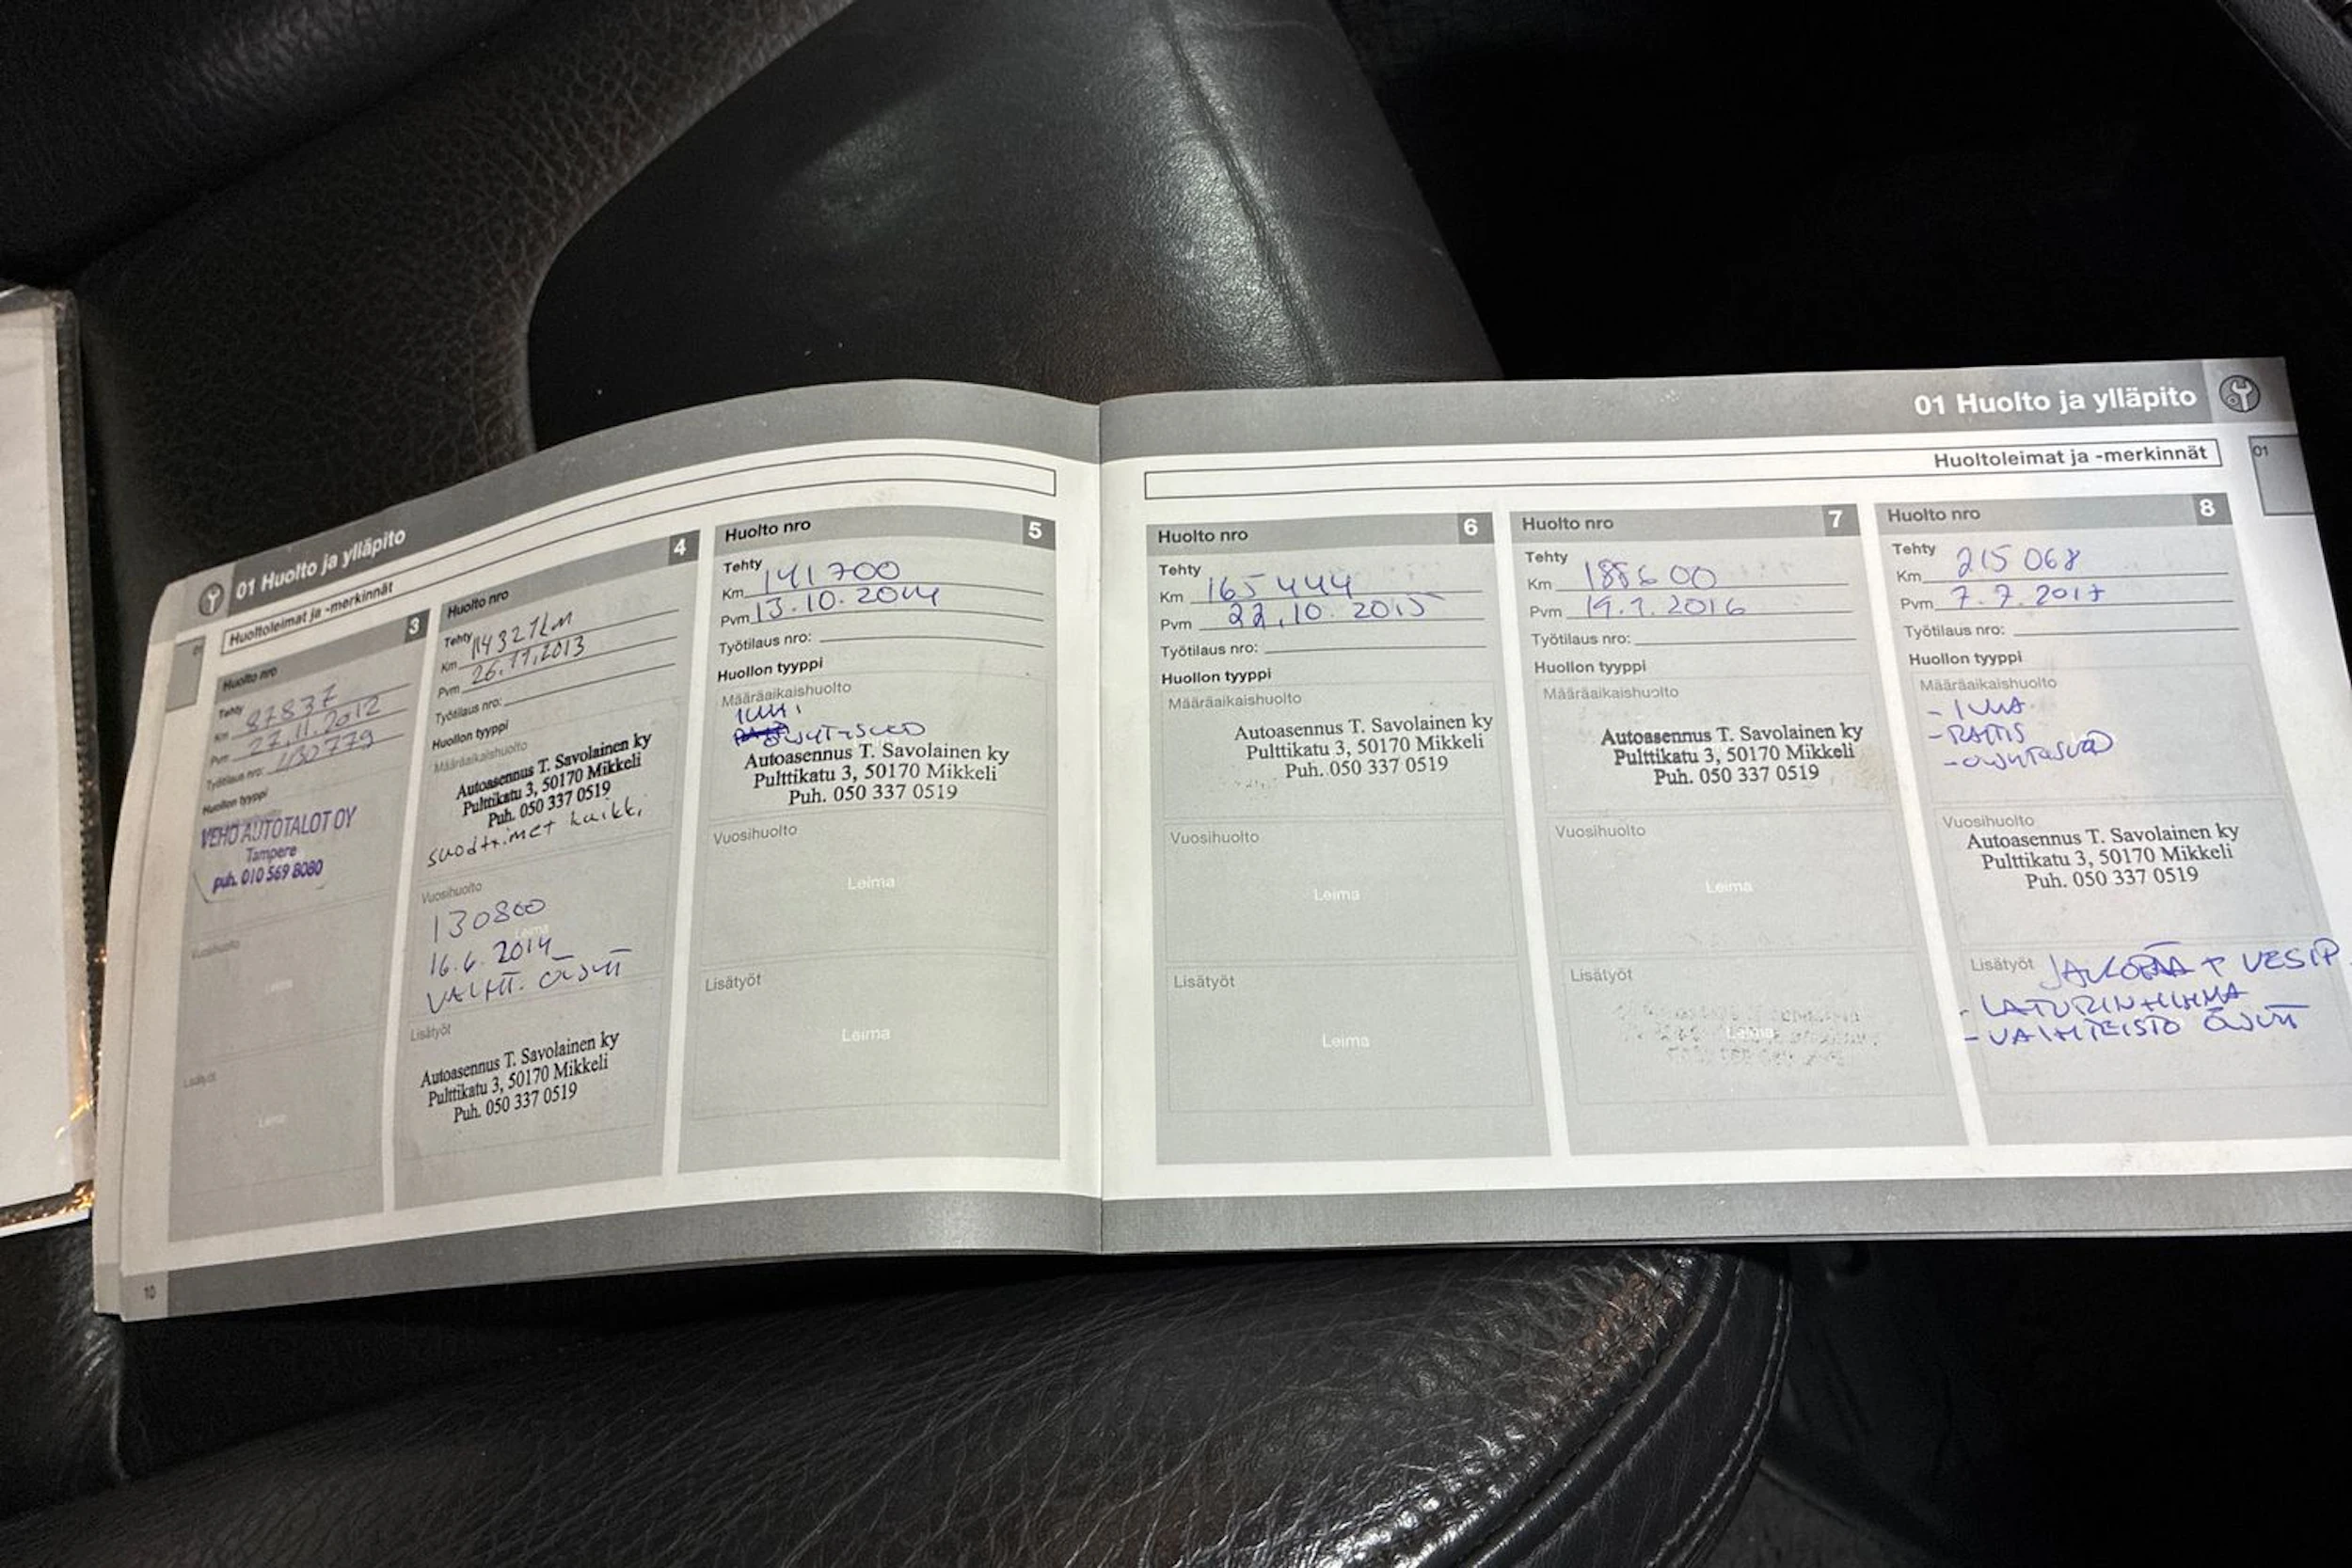 01 Huolto ja ylläpito
Huoltoleimat ja -merkinnät
01
Huolto nro 3
Tehty
Km 87837
Pvm 27.11.2012
Työtilaus nro: 480779
Huollon tyyppi
VEHO AUTOTALOT OY
Tampere
puh. 010 569 8080
Vuosihuolto
Leima
Lisätyöt
Leima
10
Huolto nro 4
Tehty
Km 114321km
Pvm 26.11.2013
Työtilaus nro:
Huollon tyyppi
Määräaikaishuolto
Autoasennus T. Savolainen ky
Pulttikatu 3, 50170 Mikkeli
Puh. 050 337 0519
suodattimet kaikki
Vuosihuolto
130800
Leima
16.6.2014
VAIHT. ÖLJYT
Lisätyöt
Autoasennus T. Savolainen ky
Pulttikatu 3, 50170 Mikkeli
Puh. 050 337 0519
Huolto nro 5
Tehty
Km 141700
Pvm 13.10.2014
Työtilaus nro:
Huollon tyyppi
Määräaikaishuolto
ILMA
ÖLJYT+SUOD
Autoasennus T. Savolainen ky
Pulttikatu 3, 50170 Mikkeli
Puh. 050 337 0519
Vuosihuolto
Leima
Lisätyöt
Leima
01 Huolto ja ylläpito
Huoltoleimat ja -merkinnät
01
Huolto nro 6
Tehty
Km 165444
Pvm 22.10.2015
Työtilaus nro:
Huollon tyyppi
Määräaikaishuolto
Autoasennus T. Savolainen ky
Pulttikatu 3, 50170 Mikkeli
Puh. 050 337 0519
Vuosihuolto
Leima
Lisätyöt
Leima
Huolto nro 7
Tehty
Km 188600
Pvm 19.7.2016
Työtilaus nro:
Huollon tyyppi
Määräaikaishuolto
Autoasennus T. Savolainen ky
Pulttikatu 3, 50170 Mikkeli
Puh. 050 337 0519
Vuosihuolto
Leima
Lisätyöt
Leima
Huolto nro 8
Tehty
Km 215068
Pvm 7.7.2017
Työtilaus nro:
Huollon tyyppi
Määräaikaishuolto
- ILMA
- RAITIS
- ÖLJYT+SUOD
Vuosihuolto
Autoasennus T. Savolainen ky
Pulttikatu 3, 50170 Mikkeli
Puh. 050 337 0519
Lisätyöt JAKOPÄÄ + VESIP.
- LATURINHIHNA
- VAIHTEISTO ÖLJYT